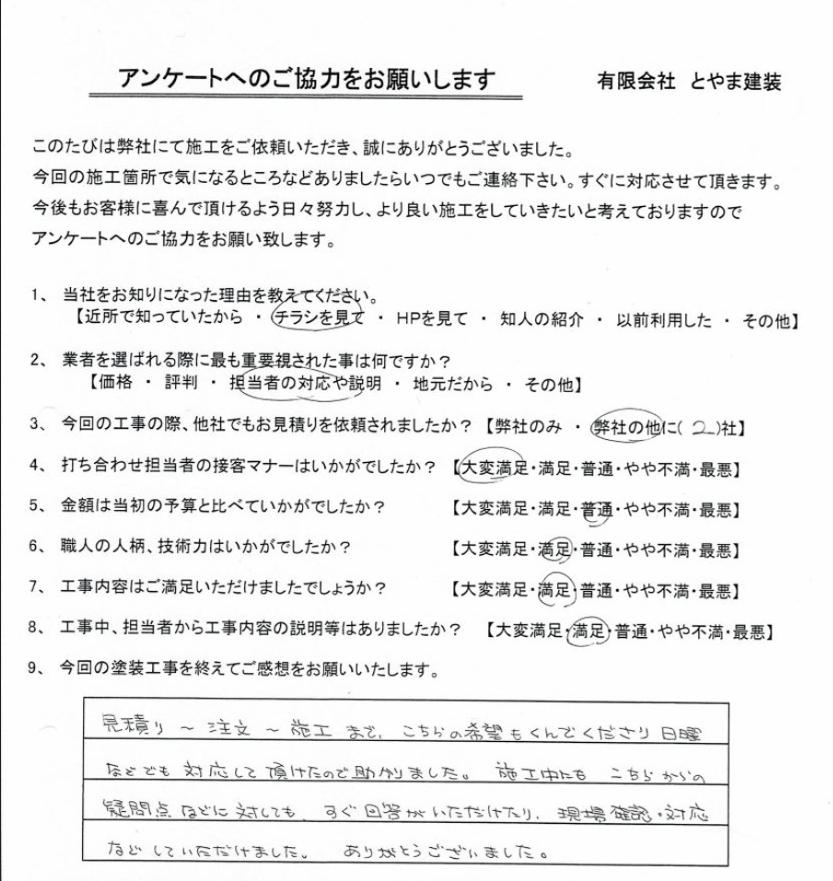 アンケートへのご協力をお願いします 有限会社 とやま建装
このたびは弊社にて施工をご依頼いただき、誠にありがとうございました。
今回の施工箇所で気になるところなどありましたらいつでもご連絡下さい。すぐに対応させて頂きます。
今後もお客様に喜んで頂けるよう日々努力し、より良い施工をしていきたいと考えておりますので
アンケートへのご協力をお願い致します。
1、 当社をお知りになった理由を教えてください。
【近所で知っていたから ・ チラシを見て ・ HPを見て ・ 知人の紹介 ・ 以前利用した ・ その他】
2、 業者を選ばれる際に最も重要視された事は何ですか？
【価格 ・ 評判 ・ 担当者の対応や説明 ・ 地元だから ・ その他】
3、 今回の工事の際、他社でもお見積りを依頼されましたか？ 【弊社のみ ・ 弊社の他に( 2 )社】
4、 打ち合わせ担当者の接客マナーはいかがでしたか？ 【大変満足・満足・普通・やや不満・最悪】
5、 金額は当初の予算と比べていかがでしたか？ 【大変満足・満足・普通・やや不満・最悪】
6、 職人の人柄、技術力はいかがでしたか？ 【大変満足・満足・普通・やや不満・最悪】
7、 工事内容はご満足いただけましたでしょうか？ 【大変満足・満足・普通・やや不満・最悪】
8、 工事中、担当者から工事内容の説明等はありましたか？ 【大変満足・満足・普通・やや不満・最悪】
9、 今回の塗装工事を終えてご感想をお願いいたします。
見積り～注文～施工まで、こちらの希望もくんでくださり日曜
などでも対応して頂けたので助かりました。 施工中にもこちらからの
疑問点などに対しても、すぐ回答がいただけたり、現場確認・対応
などしていただけました。 ありがとうございました。